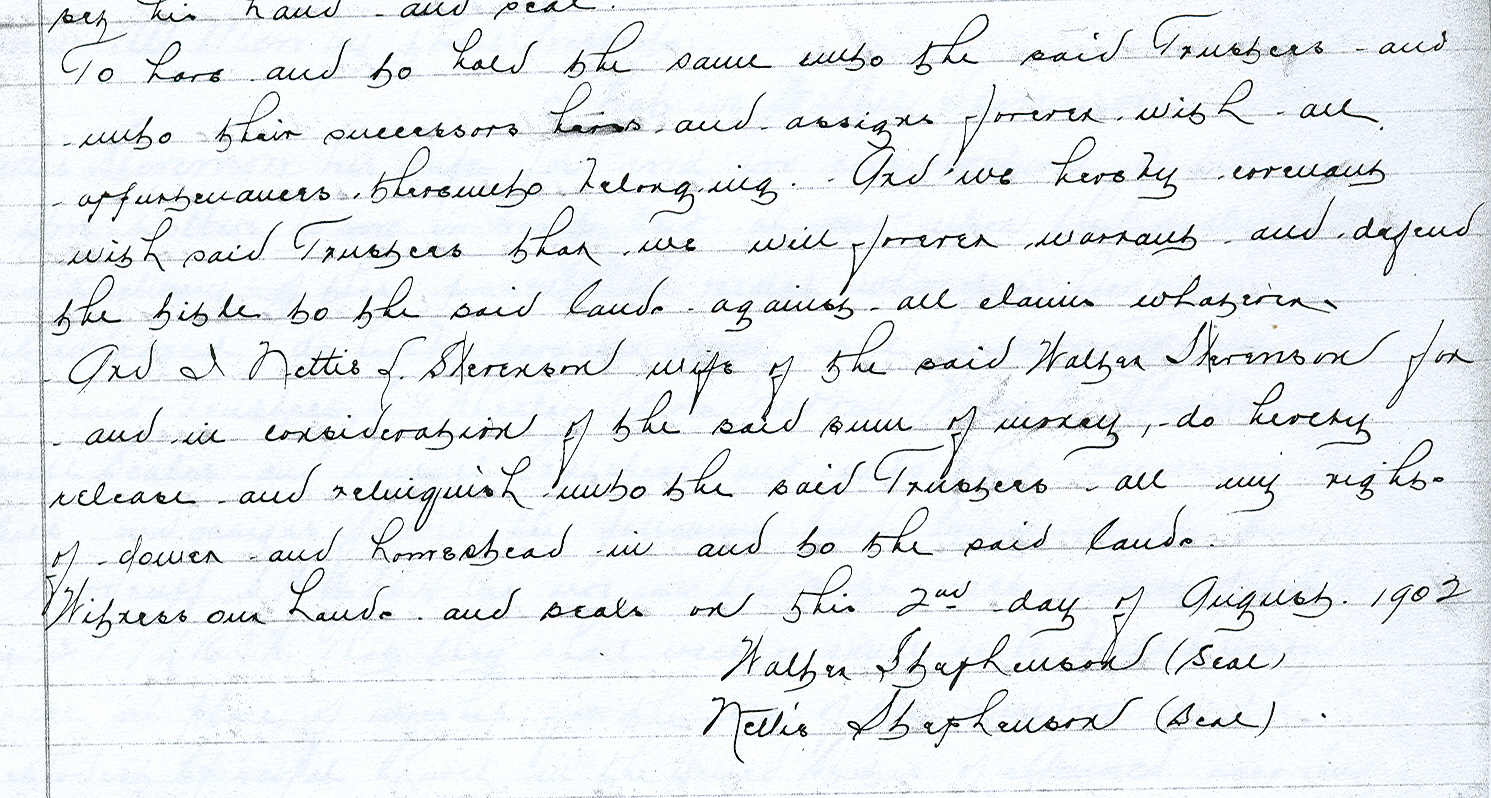 set his hand and seal.
To have and to hold the same unto the said Trustees and
unto their successors heirs and assigns forever with all
appurtenances thereunto belonging. And we hereby covenant
with said Trustees that we will forever warrant and defend
the title to the said lands against all claims whatever.
And I Nettie L. Stevenson wife of the said Walter Stevenson for
and in consideration of the said sum of money, do hereby
release and relinquish unto the said Trustees all my right
of dower and homestead in and to the said lands.
Witness our hands and seals on this 2nd day of August. 1902
Walter Stephenson (Seal)
Nettie Stephenson (Seal)